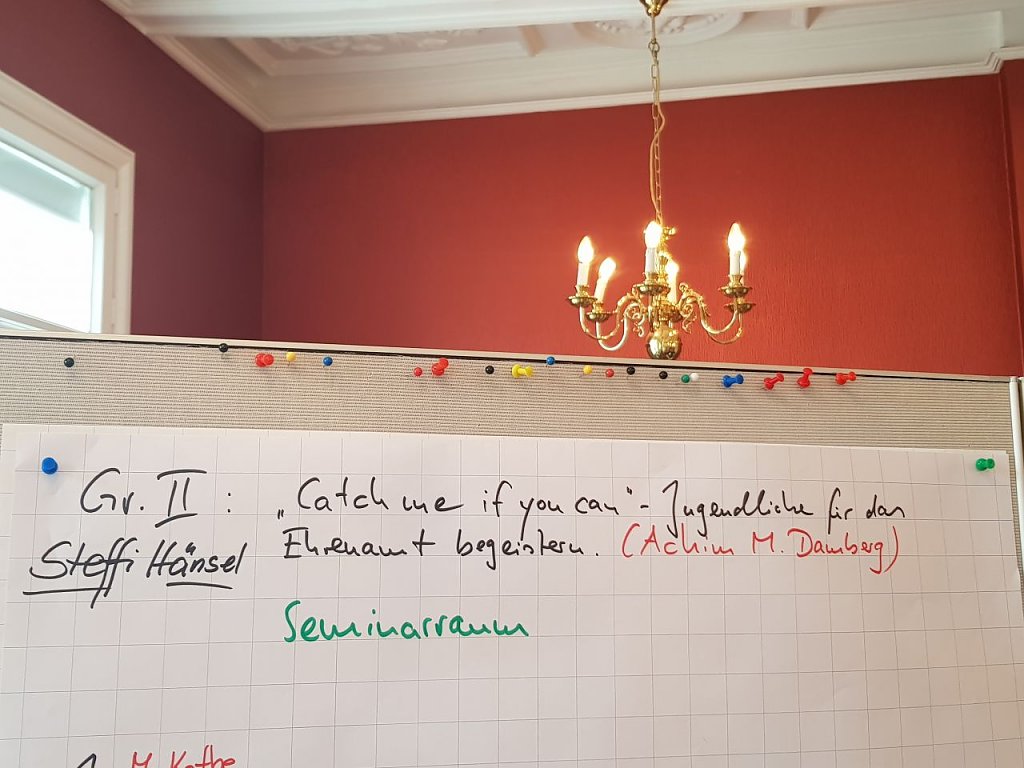 Gr. II : „Catch me if you can“ - Jugendliche für das
Steffi Hänsel Ehrenamt begeistern. (Achim M. Damberg)
Seminarraum
M. Kothe